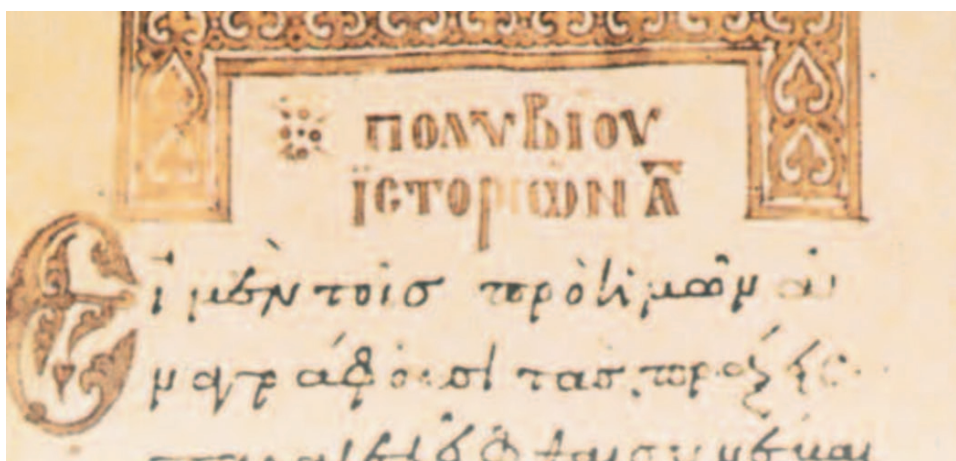 ΠΟΛΥΒΙΟΥ
ΪΣΤΟΡΙΩΝ Α̅
Εἰ μὲν τοῖσ πρὸ ἡμῶν ἀ
ναγράφουσι τὰσ πράξεισ